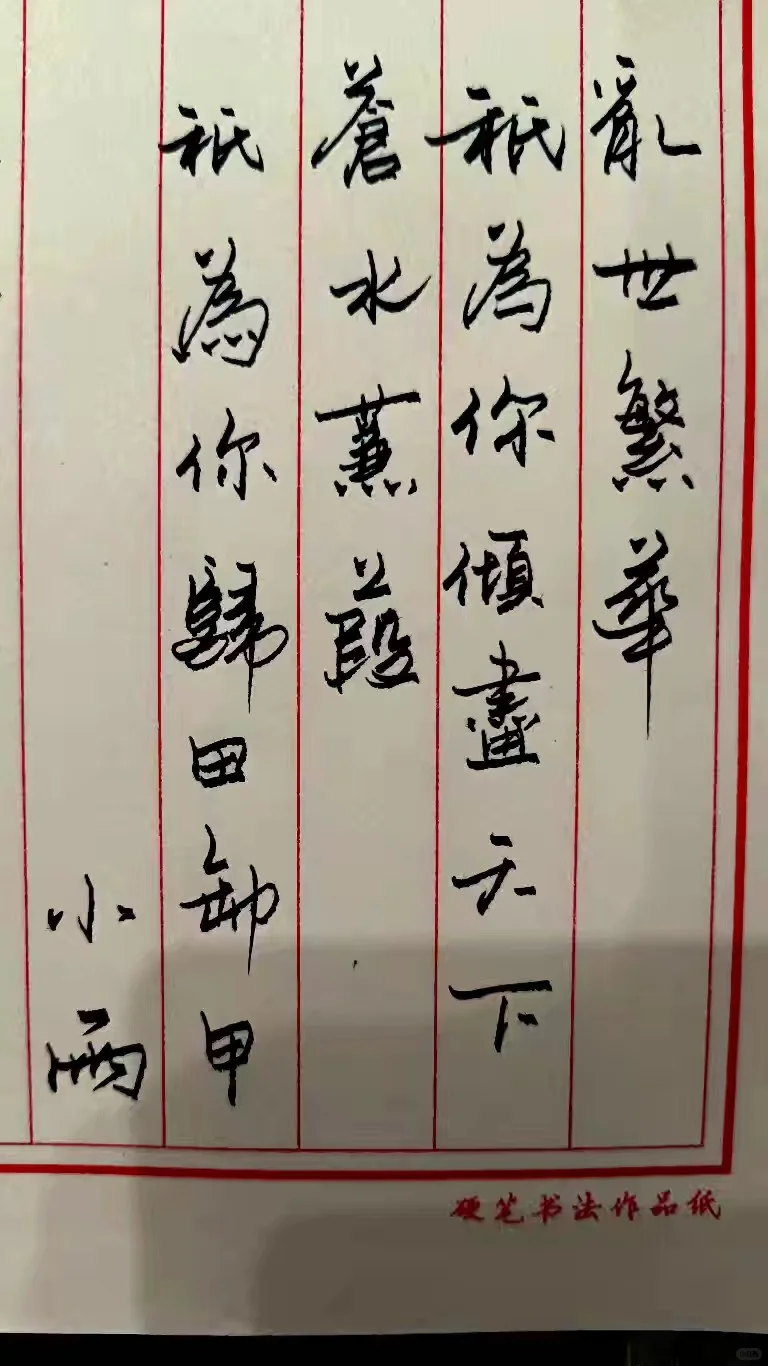 亂世繁華
祇為你傾盡天下
蒼水蒹葭
祇為你歸田卸甲
小雨
硬笔书法作品纸